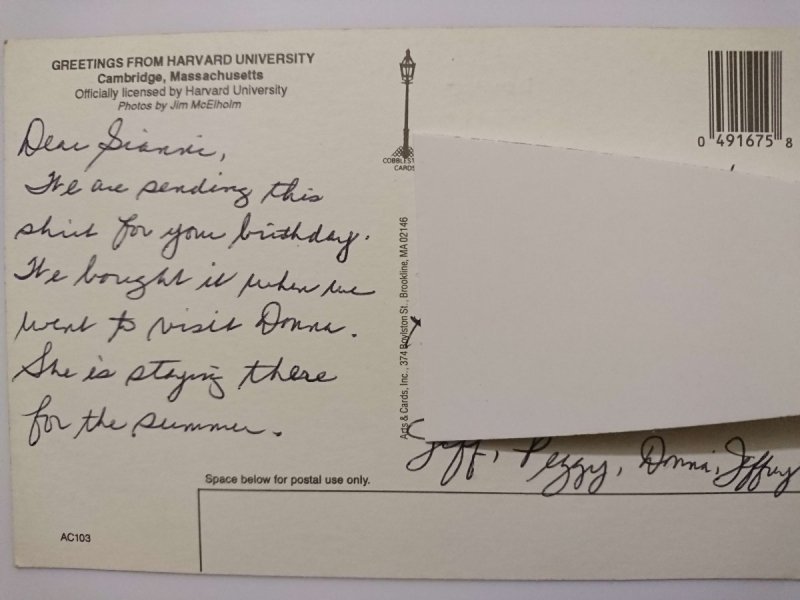 GREETINGS FROM HARVARD UNIVERSITY
Cambridge, Massachusetts
Officially licensed by Harvard University
Photos by Jim McElholm
Dear Gianni,
We are sending this
shirt for your birthday.
We bought it when we
went to visit Donna.
She is staying there
for the summer.
COBBLEST
CARDS
0 491675 8
Arts & Cards, Inc., 374 Boylston St., Brookline, MA 02146
Jeff, Peggy, Donna, Jeffrey
Space below for postal use only.
AC103